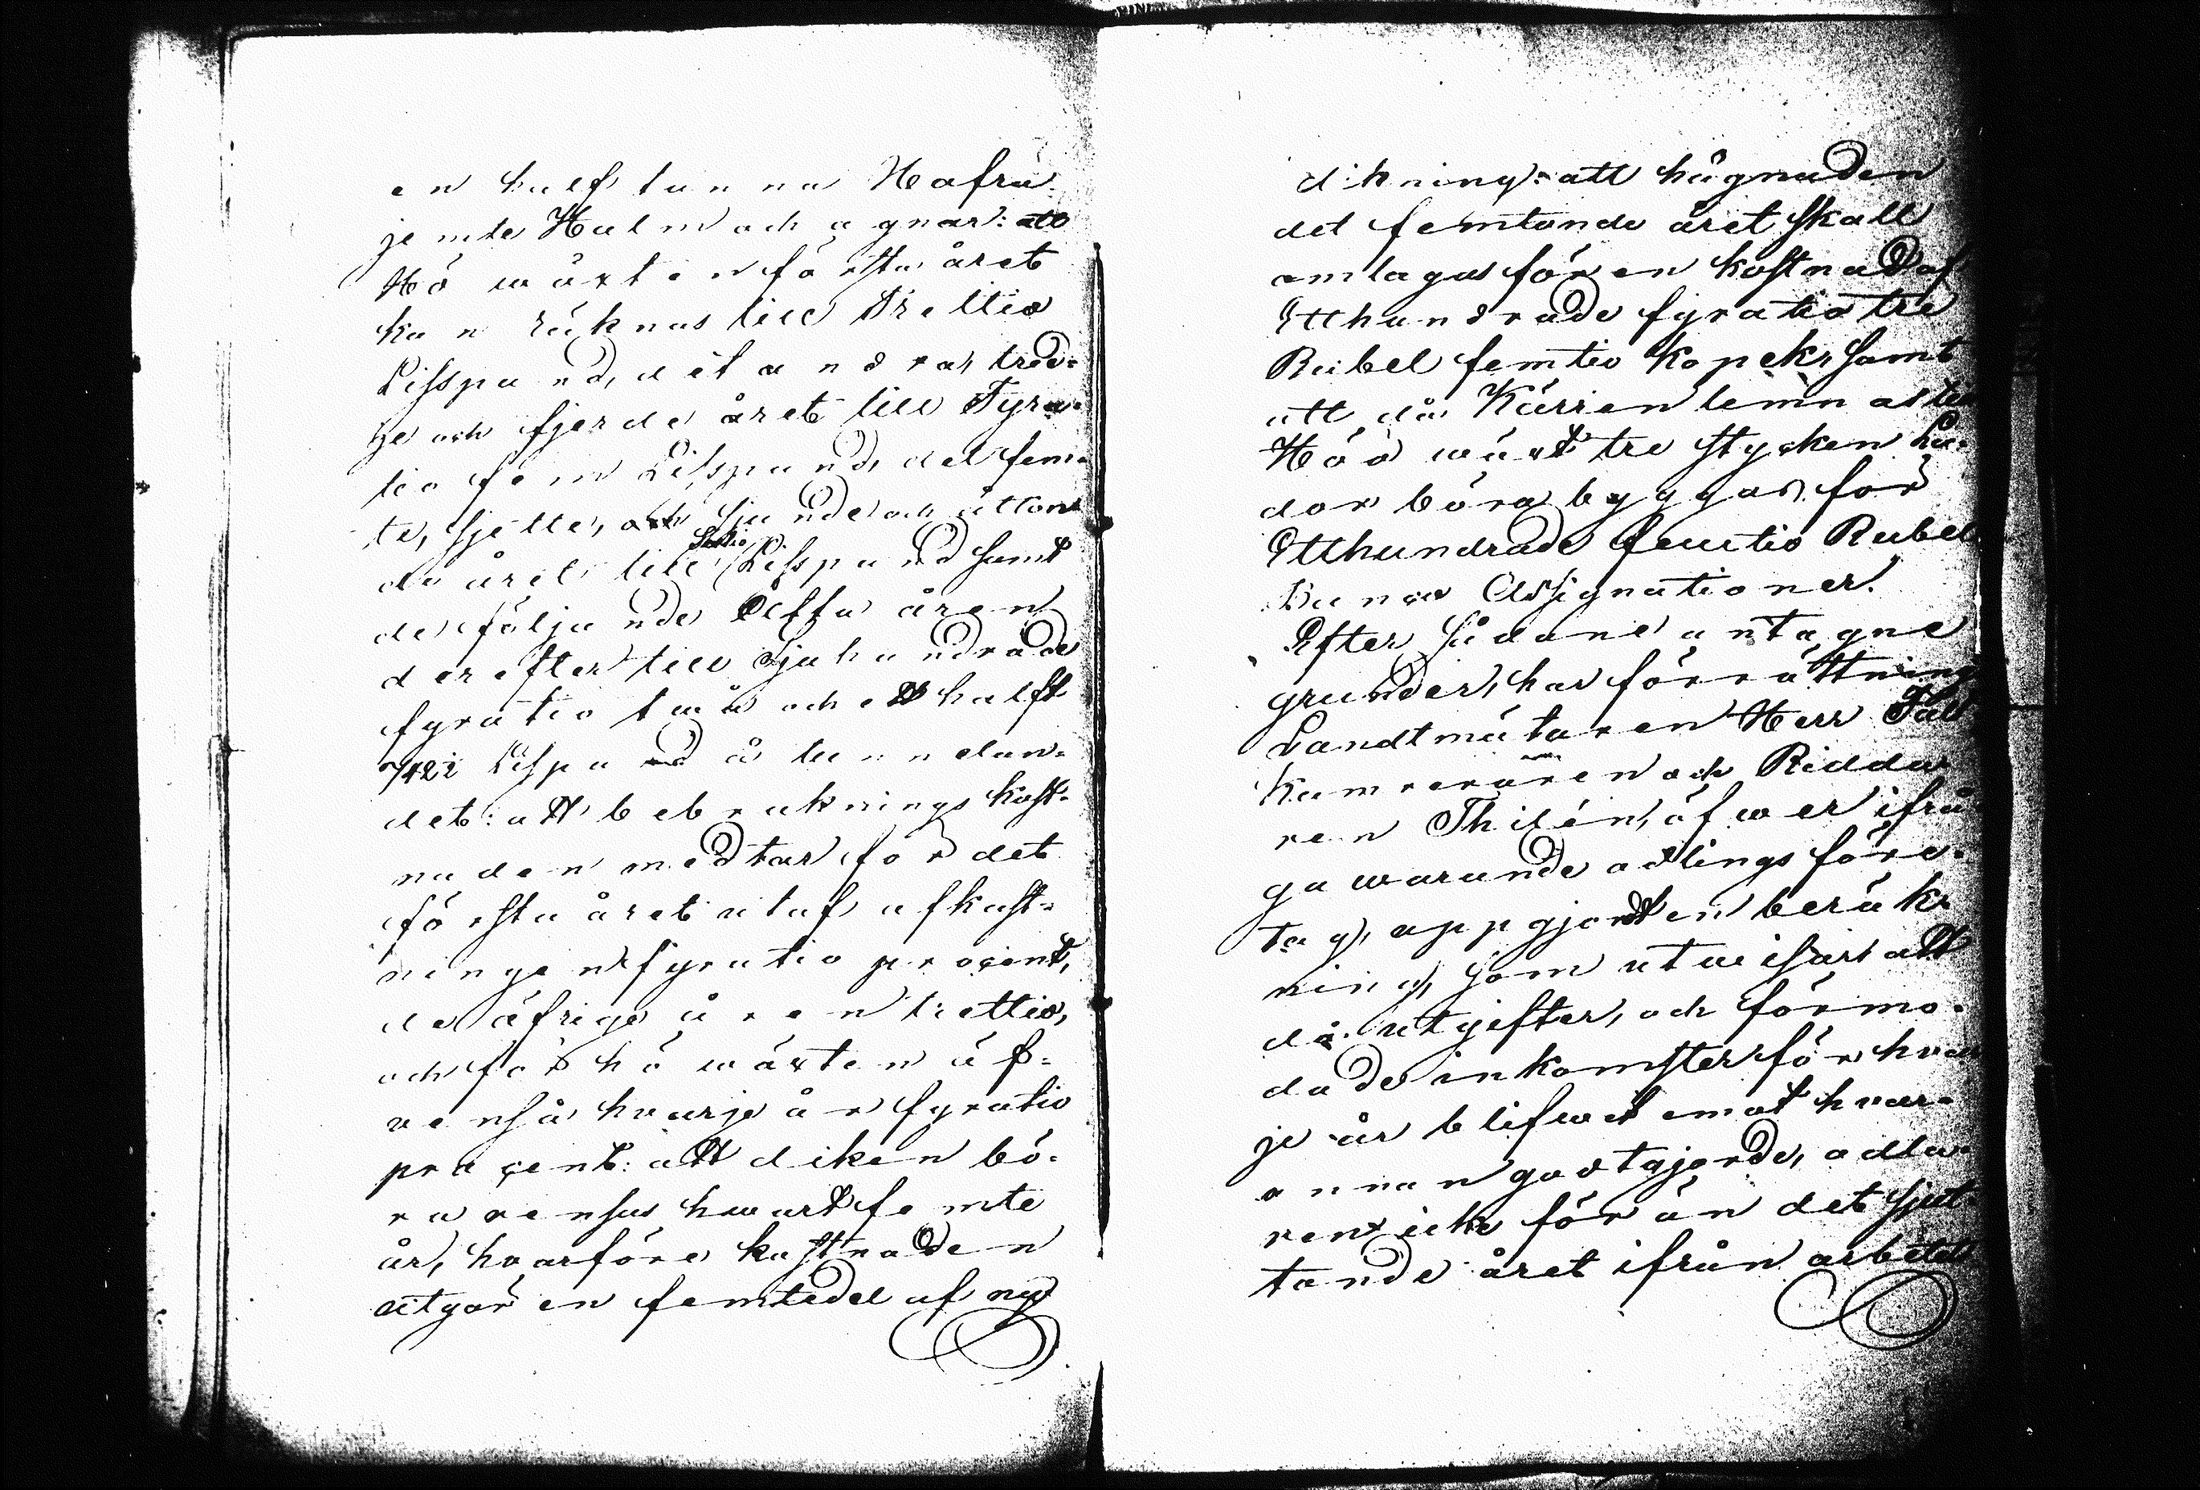 en half tunna Hafra
jemte Halm och agnar: att
Hö wäxten första året
kan räknas till Trettio
Lisspund, det andra, tred-
je och fjerde året till Fyra-
tio fem Lisspund, det fem-
te, sjette, och sjunde och åtton-
de året till Sextio Lisspund samt
de följande Ållfa åren
derefter till Sjuhundrade
fyratio twå och ett halft
742½ Lispund å tunnelan-
det: att bebruknings kost-
naden medtar för det
första året utaf afkast-
ningen fyratio procent,
de öfriga åren trettio,
och för hö wäxten äf-
wenså hvarje år fyratio
procent: att diken bö-
ra rensas hwart femte
år, hvarföre kostnaden
utgör en femtedel af ny
dikning: att hägnaden
det femtonde året skall
omlagas för en kostnad af
Etthundrade fyratio tre
Rubel femtio kopek, samt
att då Kärren lemnas till
Hö wäxt tre stycken La-
dor böra byggas för
Etthundrade femtio Rubel
Banco Assignationer.
Efter sådane antagne
grunder, har förrättnings
Landtmätaren Herr
Kamreraren och Ridda-
ren Thilén, öfwer ifrå-
gawarande odlings före-
tag, uppgjordt en beräk-
ning, som utwisar att
då utgifter, och förmo-
dade inkomster för hvar-
je år blifwit emot hvar-
annan godtgjorde, odla-
ren icke förän det sjut-
tonde året ifrån arbetet